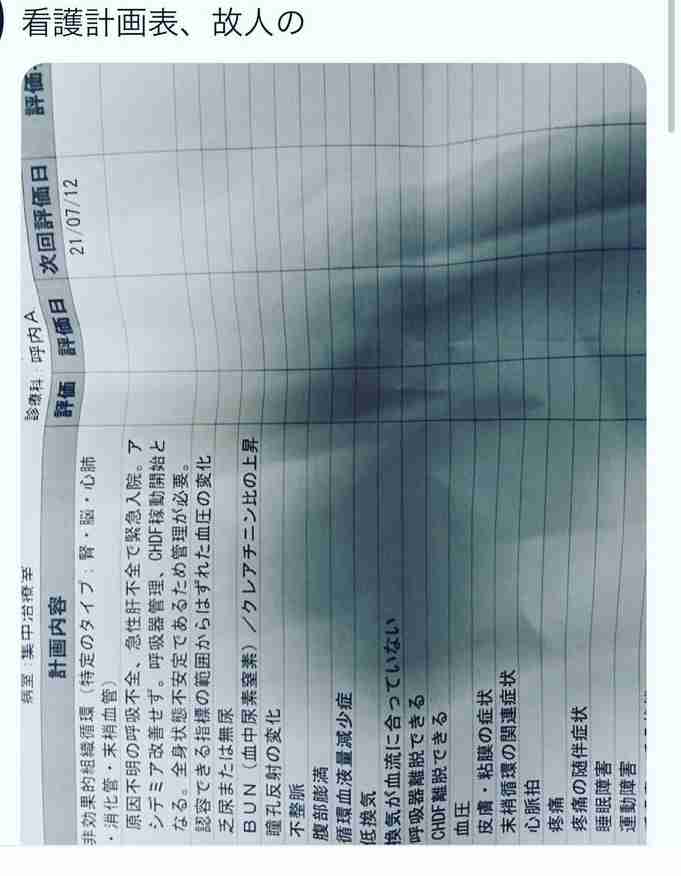 看護計画表、故人の
病室：集中治療室
診療科：呼内A
計画内容
評価
評価日
次回評価日
評価
非効果的組織循環（特定のタイプ：腎・脳・心肺
・消化管・末梢血管）
21/07/12
原因不明の呼吸不全、急性肝不全で緊急入院。ア
シデミア改善せず。呼吸器管理、CHDF稼動開始と
なる。全身状態不安定であるため管理が必要。
認容できる指標の範囲からはずれた血圧の変化
乏尿または無尿
BUN（血中尿素窒素）／クレアチニン比の上昇
瞳孔反射の変化
不整脈
腹部膨満
循環血液量減少症
低換気
換気が血流に合っていない
呼吸器離脱できる
CHDF離脱できる
血圧
皮膚・粘膜の症状
末梢循環の関連症状
心脈拍
疼痛
疼痛の随伴症状
睡眠障害
運動障害